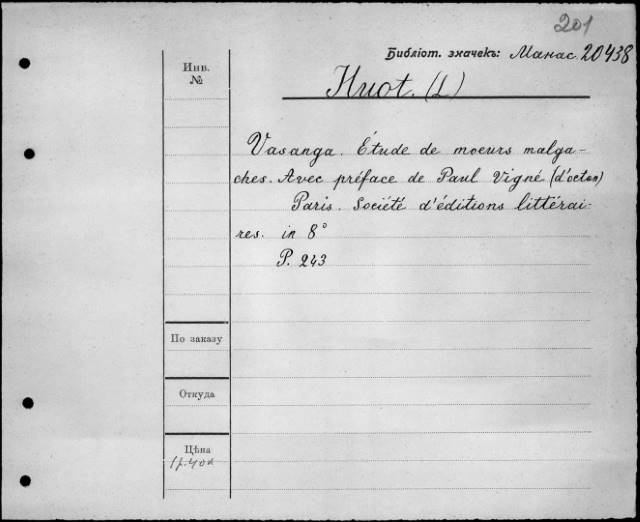 201
Библіот. значекъ: Манас. 20438
Инв.
№
Huot. (L)
Vasanga. Étude de moeurs malga-
ches. Avec préface de Paul Vigné (d'octon)
Paris. Société d'éditions littérai-
res. in 8°
P. 243
По заказу
Откуда
Цѣна
1р. 40к